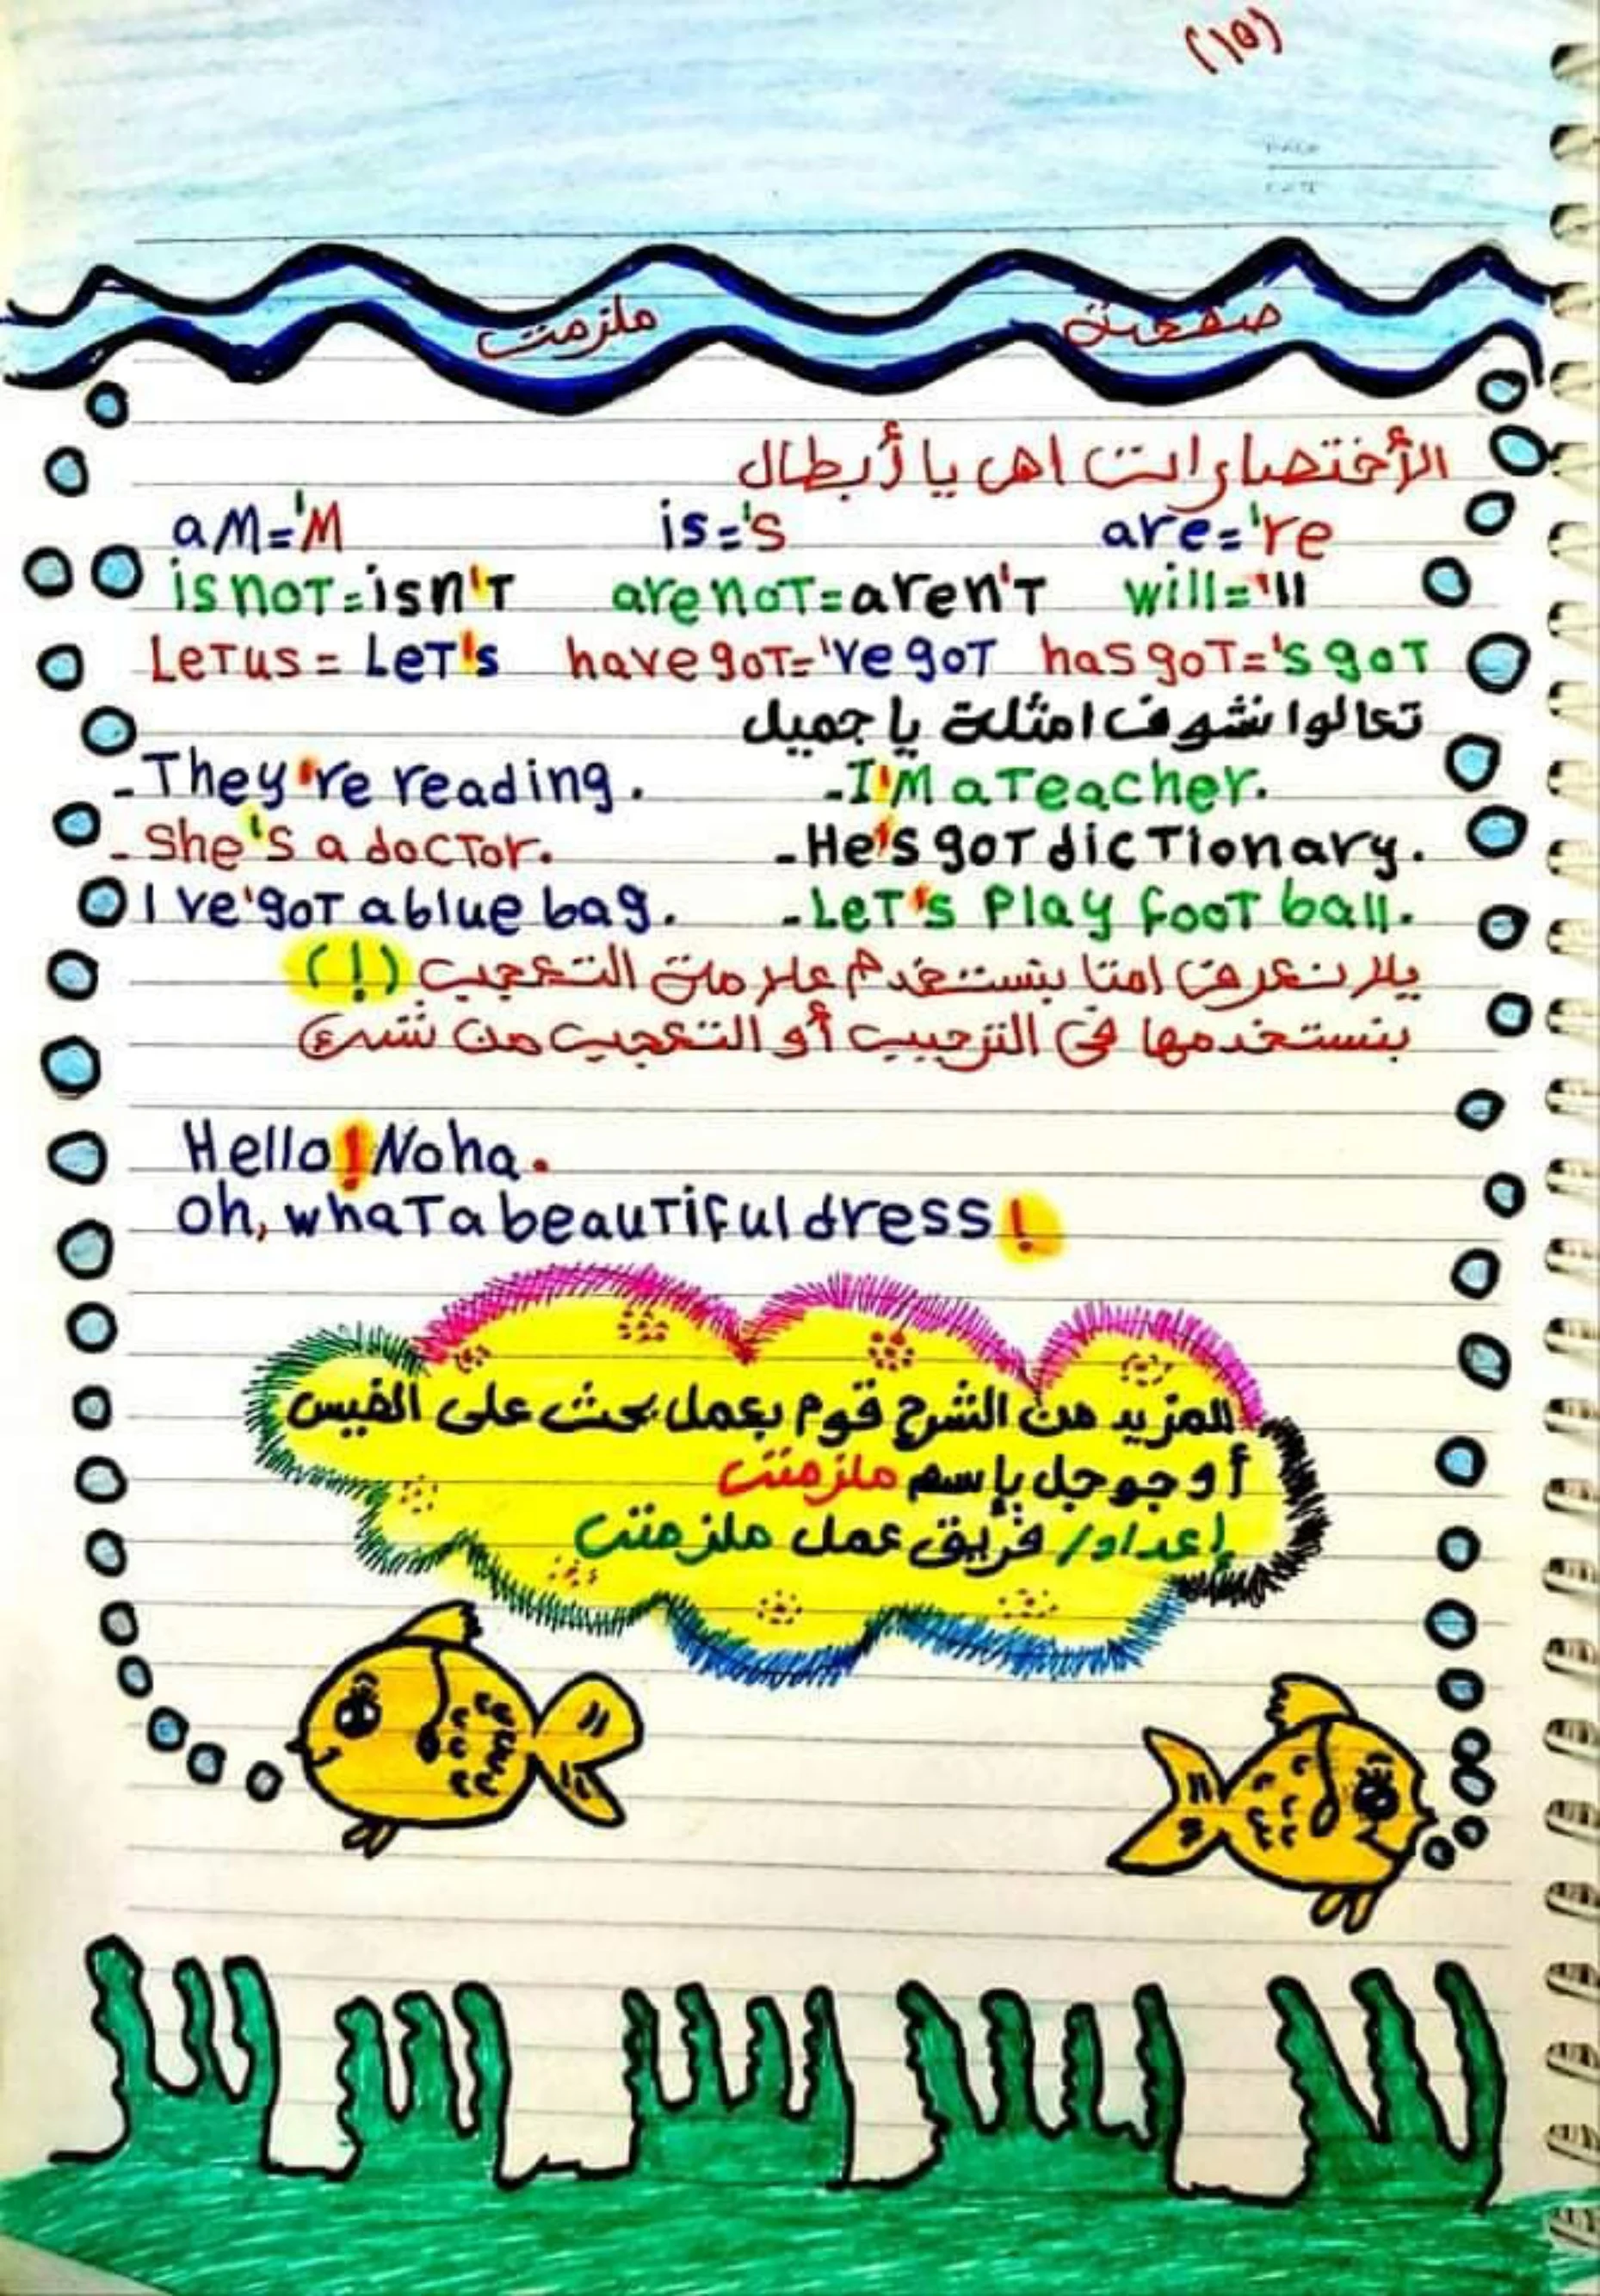 (١٥)
صفحة ملزمتى
الأختصارات اهى يا أبطال
am='m is='s are='re
is not=isn't are not=aren't will='ll
Let us = Let's have got='ve got has got='s got
تعالوا نشوف امثلة يا جميل
- They're reading. - I'm a Teacher.
- She's a doctor. - He's got dictionary.
I ve'got a blue bag. - Let's Play foot ball.
يلا نعرف امتا بنستخدم علامة التعجب (!)
بنستخدمها فى الترحيب أو التعجب من شىء
Hello! Noha.
Oh, what a beautiful dress!
للمزيد من الشرح قوم بعمل بحث على الفيس
أو جوجل بإسم ملزمتى
إعداد/ فريق عمل ملزمتى